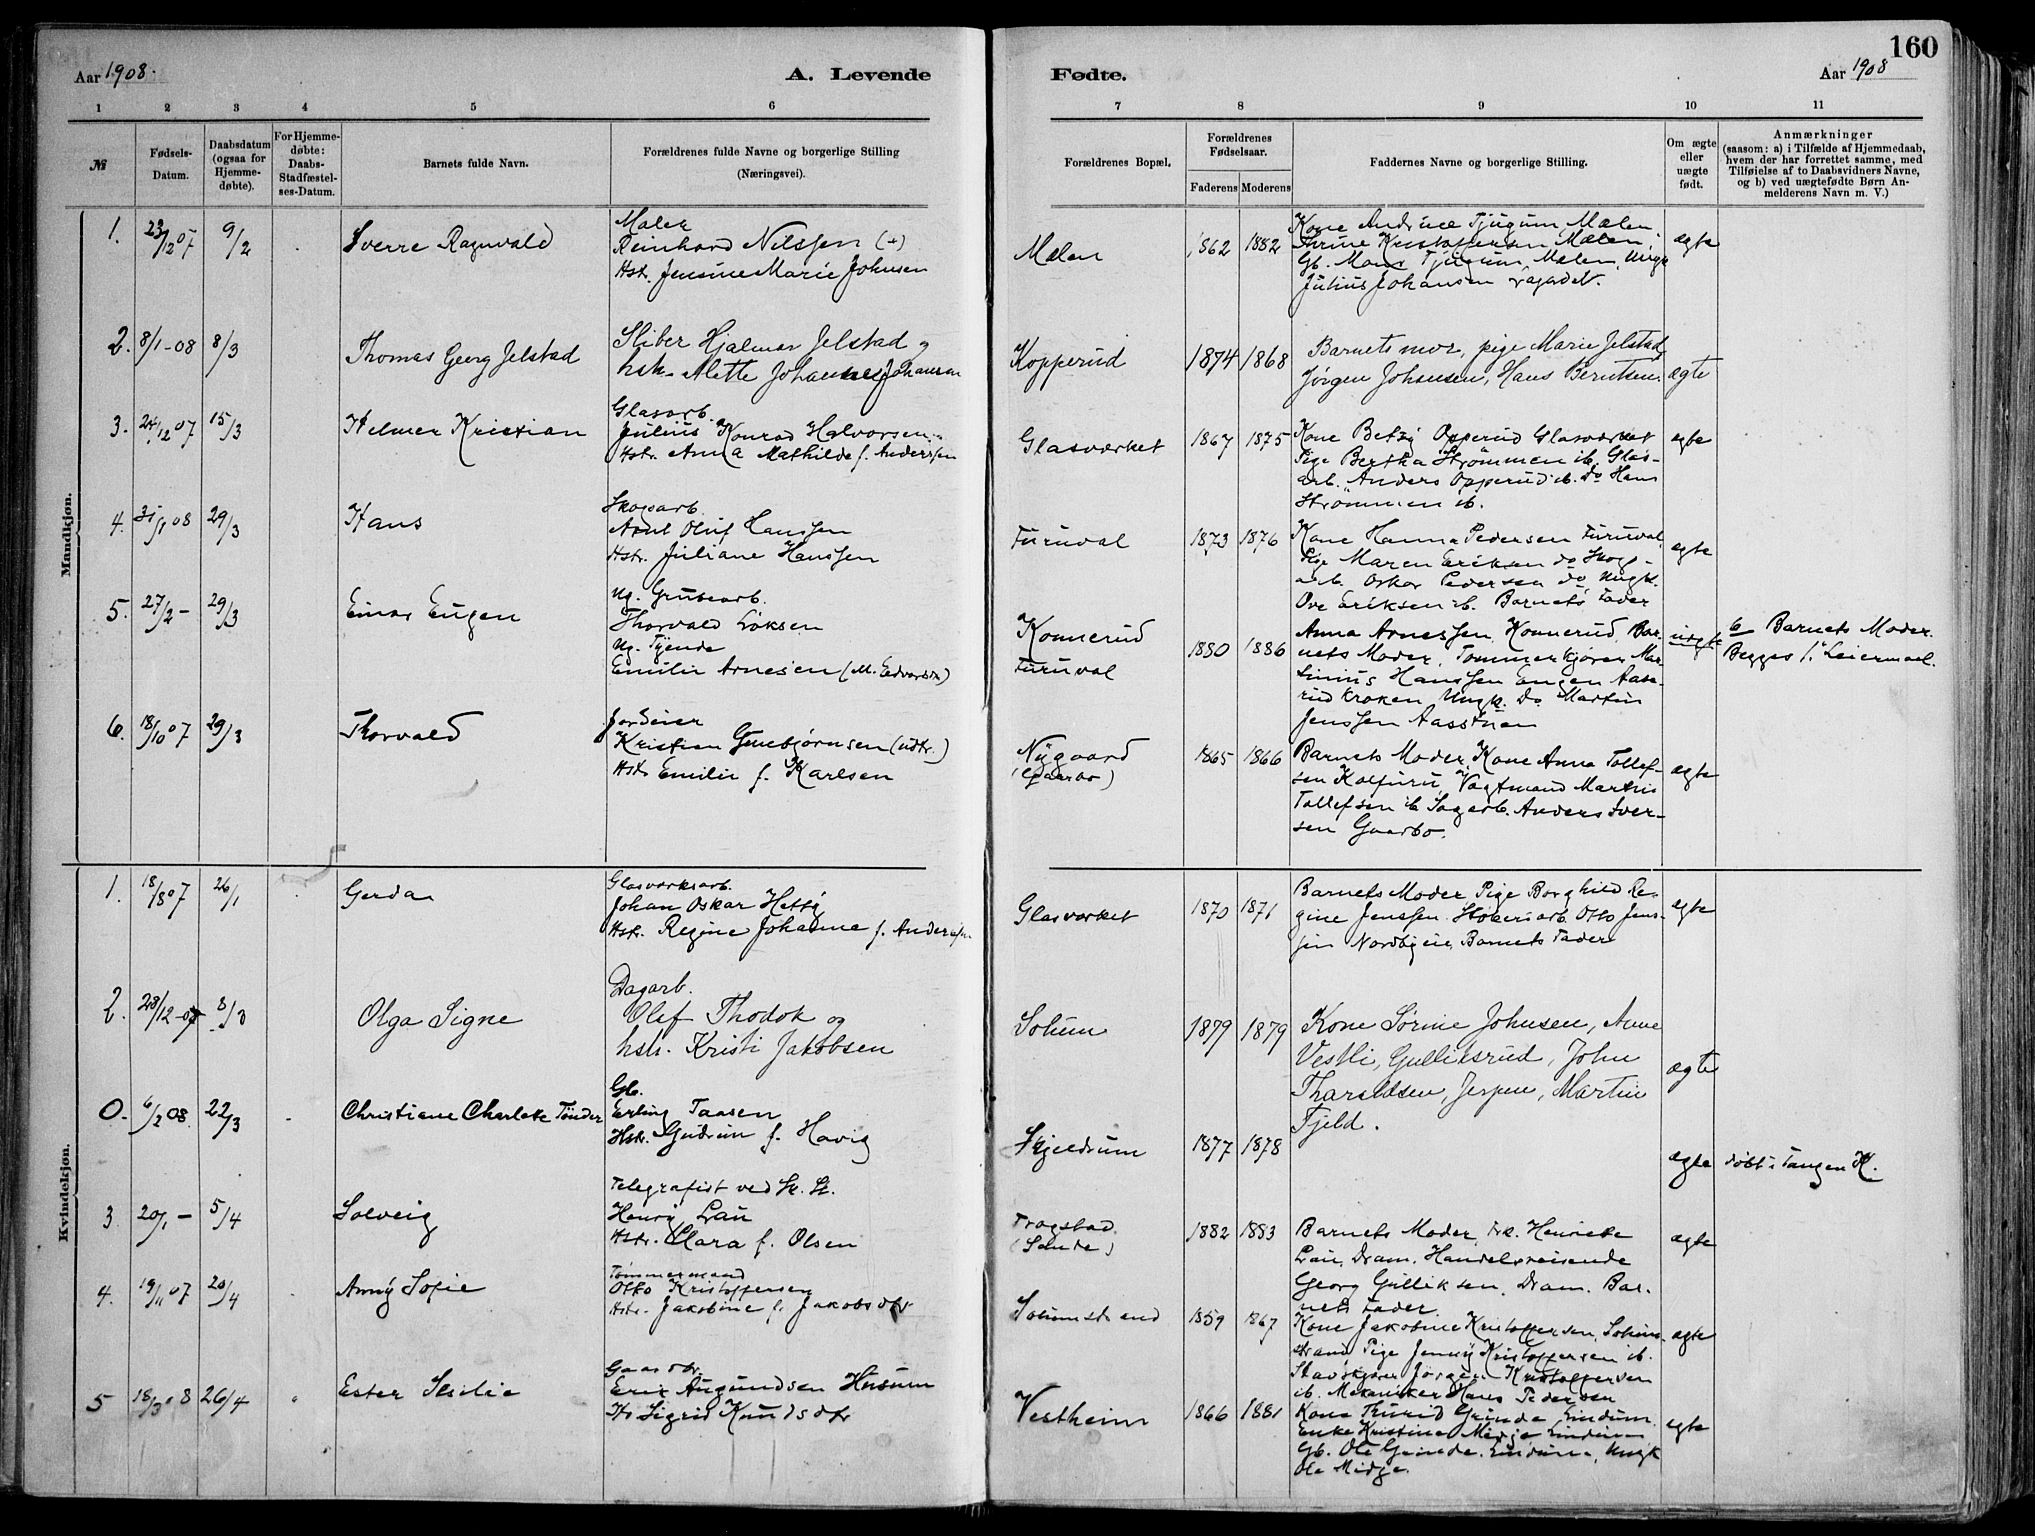 160
Aar 1908.
A. Levende
Fødte.
Aar 1908
1 2 3 4 5 6 7 8 9 10 11
№
Fødsels-
Datum.
Daabsdatum
(ogsaa for
Hjemme-
døbte).
For Hjemme-
døbte:
Daabs-
Stadfæstel-
ses-Datum.
Barnets fulde Navn.
Forældrenes fulde Navne og borgerlige Stilling
(Næringsvei).
Forældrenes Bopæl.
Forældrenes
Fødselsaar.
Faderens Moderens
Faddernes Navne og borgerlige Stilling.
Om ægte
eller
uægte
født.
Anmærkninger
(saasom: a) i Tilfælde af Hjemmedaab,
hvem der har forrettet samme, med
Tilføielse af to Daabsvidners Navne,
og b) ved uægtefødte Børn An-
melderens Navn m. V.)
Mandkjøn.
1. 23/12 07 9/2 Sverre Ragnvald
Maler
Reinhard Nilssen (+)
Hst. Jensine Marie Johnsen
Mælen 1862 1882
Kone Andrine Tjugum, Mælen
Thrine Kristoffersen Mælen,
Gb. Mons Tjugum, Mælen, Ungk
Julius Johansen
ægte
2. 8/1-08 8/3 Thomas Georg Jelstad
Sliber Hjalmar Jelstad og
hsk. Alette Johannesen Johansen
Kopperud 1874 1868
Barnets mor, pige Marie Jelstad,
Jørgen Johansen, Hans Berntsen.
ægte
3. 24/12 07 15/3 Helmer Kristian
Glasarb.
Julius Konrad Halvorsen
Hst. Anna Mathilde f. Anderssen
Glasværket 1867 1875
Kone Betzy Opperud Glasværket
Pige Bertha Strømmen ib. Glas-
arb. Anders Opperud ib. Do Hans
Strømmen ib.
ægte
4. 31/1 08 29/3 Hans
Skogsarb.
Arnt Oluf Hanssen
Hst. Juliane Hanssen
Furuval 1873 1876
Kone Hanna Pedersen Furuval,
Pige Maren Eriksen do Skogs-
arb. Oskar Pedersen do Ungk.
Ove Eriksen ib. Barnets Fader
ægte
5. 27/2 - 29/3 Einar Eugen
Ug. Grubearb.
Thorvald Løksen
Ug. Tjende
Emilie Arnesen (M. Edvardsen)
Konnerud
Furuval
1880 1886
Anna Arnessen, Konnerud, Bar-
nets Moder, Tømmerkjører Mar-
tinius Hanssen Engen Aase-
rud kroken Ungk. Do Martin
Jenssen Aasstuen
uægte
b Barnets Moder.
Begges 1. Leiermaal.
6. 18/10 07 29/3 Thorvald
Jordeier
Kristian Gunbjørnsen (udtr.)
Hst. Emilie f. Karlsen
Nygaard
1865 1866
Barnets Moder, Kone Anna Tollef-
sen Kolfuru, Vagtmand Martin
Tollefsen ib Sagarb. Anders Iver-
sen Gaarbo.
ægte
Kvindekjøn.
1. 18/8 07 26/1 Gerda
Glasværksarb.
Johan Oskar Hetty
Hst. Regine Johanne f. Anderssen
Glasværket 1870 1871
Barnets Moder, Pige Borghild Re-
gine Jenssen. Støberiarb. Otto Jens-
sen Nordbyeie, Barnets Fader
ægte
2. 28/12-07 8/3 Olga Signe
Dagarb.
Olef Thodok og
hsk. Kristi Jakobsen
Solum 1879 1879
Kone Sørine Johnsen, Anne
Vestli, Gulliksrud, John
Tharaldsen, Jerpen, Martin
Fjeld.
ægte
0. 6/2 08 22/3 Christiane Charlotte Tønder
Gb.
Erling Taasen
Hsk. Gudrun f. Havig
Skjeldrum 1877 1878
ægte døbt i Tangen K.
3 20/1 - 5/4 Solveig
Telegrafist ved St. St.
Henry Lau
Hst. Clara f. Olsen
Trogstad
(Sande)
1882 1883
Barnets Moder, Frk. Henriette
Lau, Dram. Handelsreisende
Georg Gulliksen, Dram. Bar-
nets Fader
ægte
4. 19/11 07 20/4 Anny Sofie
Tømmermand
Otto Kristoffersen
Hst. Jakobine f. Jakobsdtr
Solumstrand 1859 1867
Kone Jakobine Kristoffersen, Solum-
strand Pige Jenny Kristoffersen ib.
Stavskjører Jørgen Kristoffersen
ib. Mekaniker Hans Pedersen
ægte
5 18/3 08 26/4 Ester Sesilie
Gaardbr.
Erik Augundsen Husum
Hst Sigrid Knudsdtr
Vestheim 1866 1881
Kone Thurid Grinde, Lindum.
Enke Kristine Midje Lindum
Gb. Ole Grinde, Lindum, Ungk
Ole Midje.
ægte